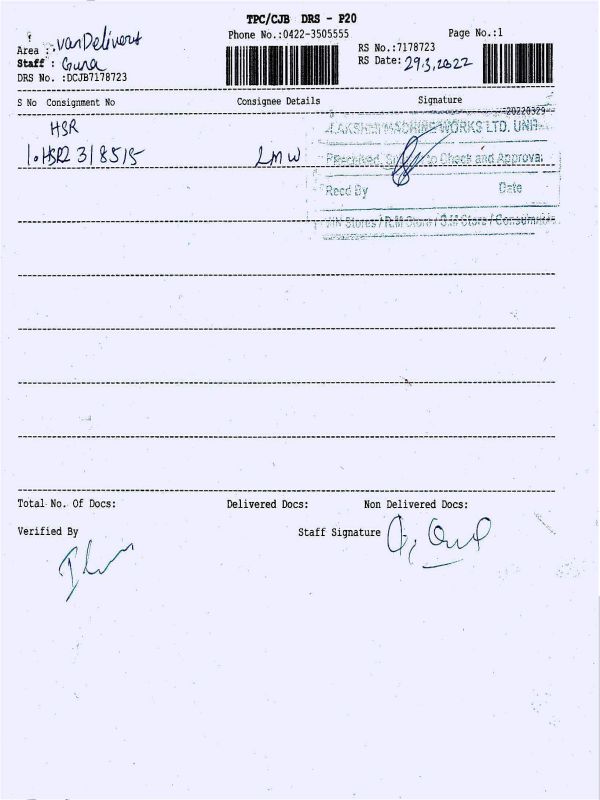 TPC/CJB DRS - P20
Phone No.:0422-3505555
Page No.:1
Area : van Delivery
RS No.:7178723
Staff : Guna
RS Date: 29.3.2022
DRS No. :DCJB7178723
S No Consignment No Consignee Details Signature
20220329
HSR
LAKSHMI MACHINE WORKS LTD. UNIT
1. HSR2 318515 LMW
Received, Subject to Check and Approval
Recd By Date
Stores / R.M Store / G.M Store / Consumable
Total No. Of Docs: Delivered Docs: Non Delivered Docs:
Verified By
Staff Signature